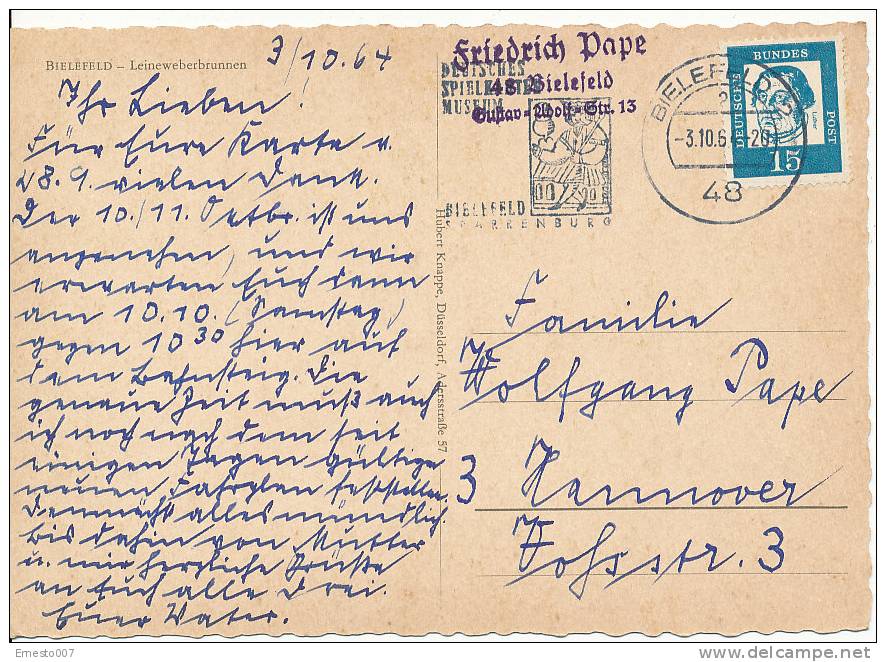 BIELEFELD – Leineweberbrunnen
3/10.64
Ihr Lieben!
Für Eure Karte v.
28.9. vielen Dank.
Der 10./11. Oktbr. ist uns
angenehm, und wir
erwarten Euch dann
am 10.10. (Samstag)
gegen 10 30 hier auf
dem Bahnsteig. Die
genaue Zeit muß auch
ich noch nach dem seit
einigen Tagen gültigen
neuen Fahrplan feststellen.
Demnächst alles mündlich.
Bis dahin von Mutter
u. mir herzliche Grüße
an Euch alle Drei.
Euer Vater.
Hubert Knappe, Düsseldorf, Adersstraße 57
Friedrich Pape
48 Bielefeld
Gustav-Adolf-Str. 13
DEUTSCHES
SPIELKARTEN
MUSEUM
BIELEFELD
SPARRENBURG
BIELEFELD
-3.10.6 -20
48
DEUTSCHE
BUNDES
POST
Luther
15
Familie
Wolfgang Pape
3 Hannover
Voßstr. 3
Ernesto007
www.delcampe.net